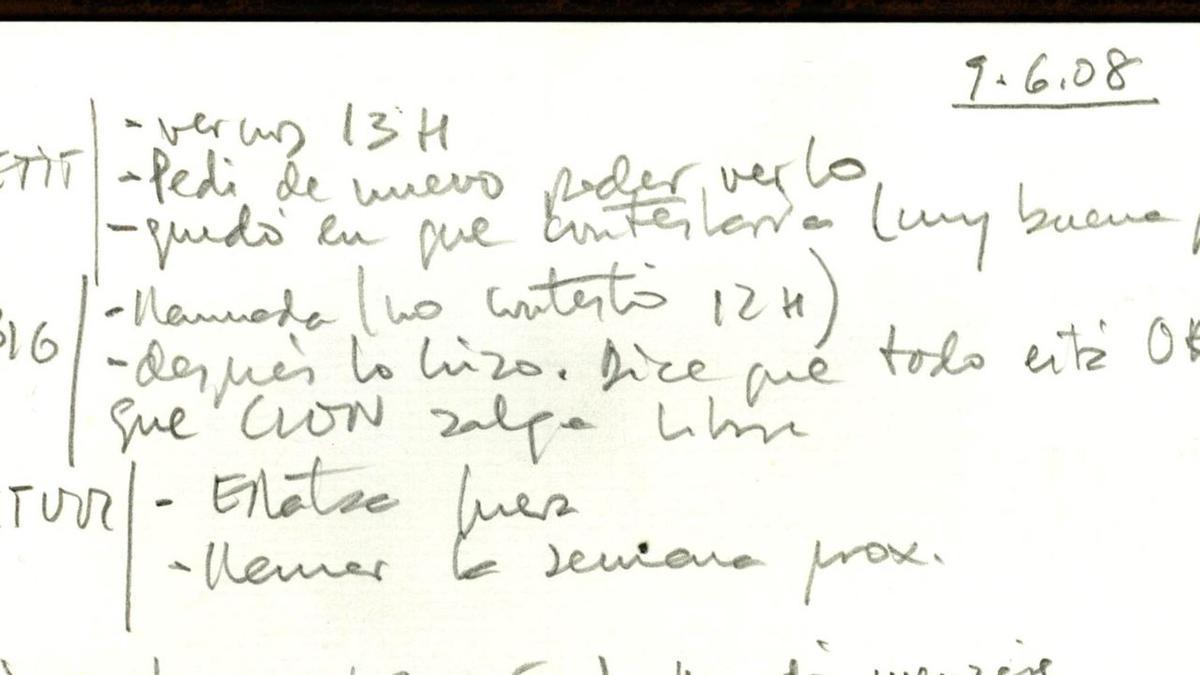 9.6.08
- vernos 13 H
- Pedi de nuevo poder verlo
- quedó en que contestaría (muy buena
- llamada (no contestó 12 H)
- después lo hizo. Dice que todo está OK
que CION salga libre
TURR - fuera
- llamar la semana prox.